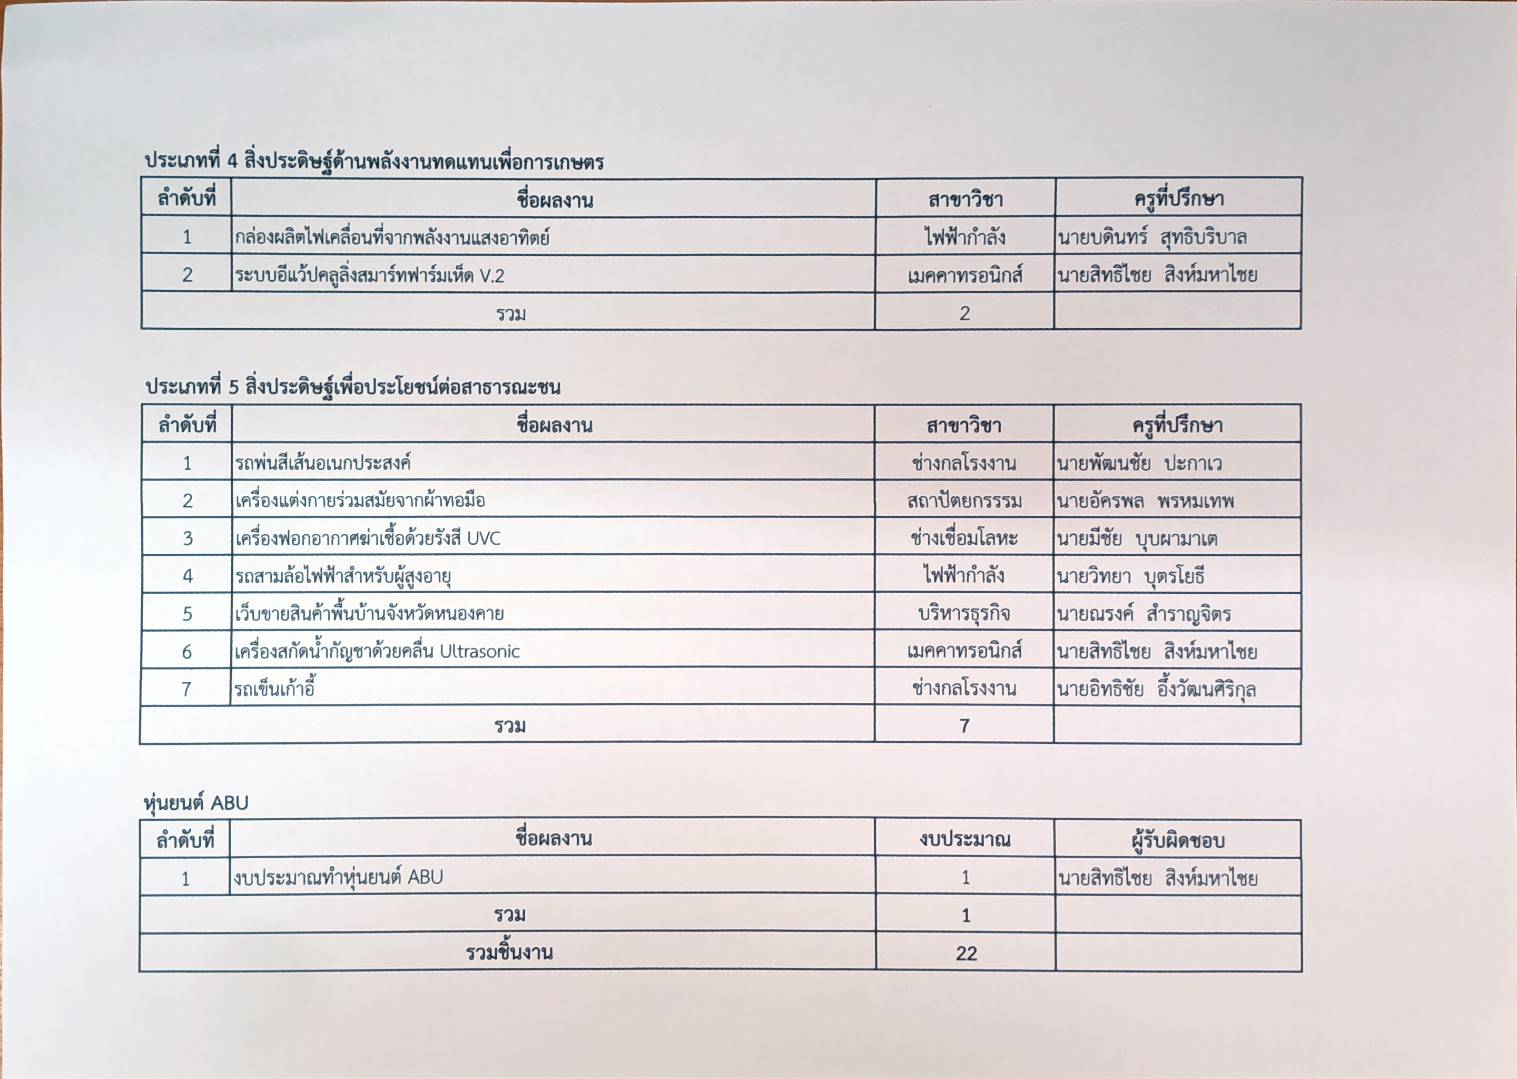 ประเภทที่ 4 สิ่งประดิษฐ์ด้านพลังงานทดแทนเพื่อการเกษตร
ลำดับที่ ชื่อผลงาน สาขาวิชา ครูที่ปรึกษา
1 กล่องผลิตไฟเคลื่อนที่จากพลังงานแสงอาทิตย์ ไฟฟ้ากำลัง นายบดินทร์ สุทธิบริบาล
2 ระบบอีแว้ปคลูลิ่งสมาร์ทฟาร์มเห็ด V.2 เมคคาทรอนิกส์ นายสิทธิไชย สิงห์มหาไชย
รวม 2
ประเภทที่ 5 สิ่งประดิษฐ์เพื่อประโยชน์ต่อสาธารณะชน
ลำดับที่ ชื่อผลงาน สาขาวิชา ครูที่ปรึกษา
1 รถพ่นสีเส้นอเนกประสงค์ ช่างกลโรงงาน นายพัฒนชัย ปะกาเว
2 เครื่องแต่งกายร่วมสมัยจากผ้าทอมือ สถาปัตยกรรรม นายอัครพล พรหมเทพ
3 เครื่องฟอกอากาศฆ่าเชื้อด้วยรังสี UVC ช่างเชื่อมโลหะ นายมีชัย บุบผามาเต
4 รถสามล้อไฟฟ้าสำหรับผู้สูงอายุ ไฟฟ้ากำลัง นายวิทยา บุตรโยธี
5 เว็บขายสินค้าพื้นบ้านจังหวัดหนองคาย บริหารธุรกิจ นายณรงค์ สำราญจิตร
6 เครื่องสกัดน้ำกัญชาด้วยคลื่น Ultrasonic เมคคาทรอนิกส์ นายสิทธิไชย สิงห์มหาไชย
7 รถเข็นเก้าอี้ ช่างกลโรงงาน นายอิทธิชัย อึ้งวัฒนศิริกุล
รวม 7
หุ่นยนต์ ABU
ลำดับที่ ชื่อผลงาน งบประมาณ ผู้รับผิดชอบ
1 งบประมาณทำหุ่นยนต์ ABU 1 นายสิทธิไชย สิงห์มหาไชย
รวม 1
รวมชิ้นงาน 22